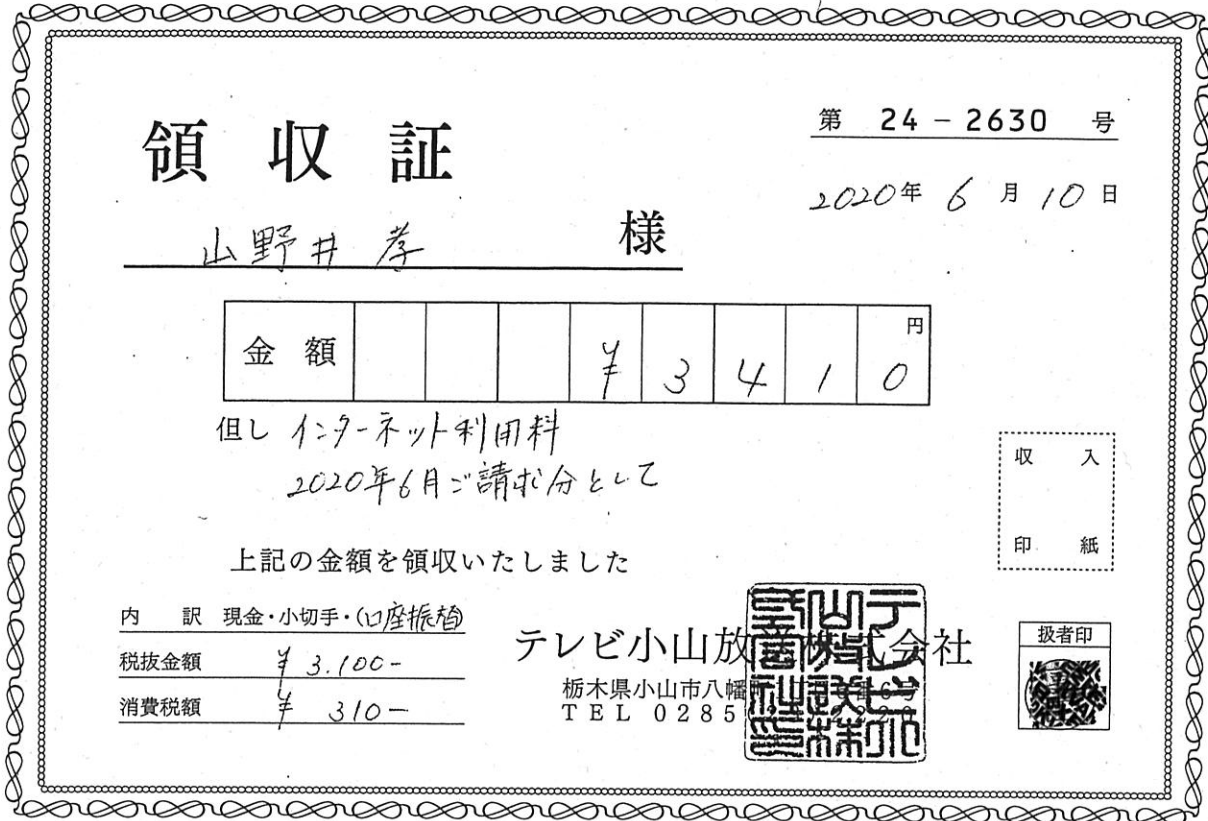 領収証
第 24-2630 号
2020年 6月 10日
山野井 孝 様
金額 ¥3410 円
但し インターネット利用料
2020年6月ご請求分として
収入
印紙
上記の金額を領収いたしました
内訳 現金・小切手・(口座振替)
税抜金額 ¥3.100-
消費税額 ¥310-
テレビ小山放送株式会社
栃木県小山市八幡
TEL 0285
扱者印